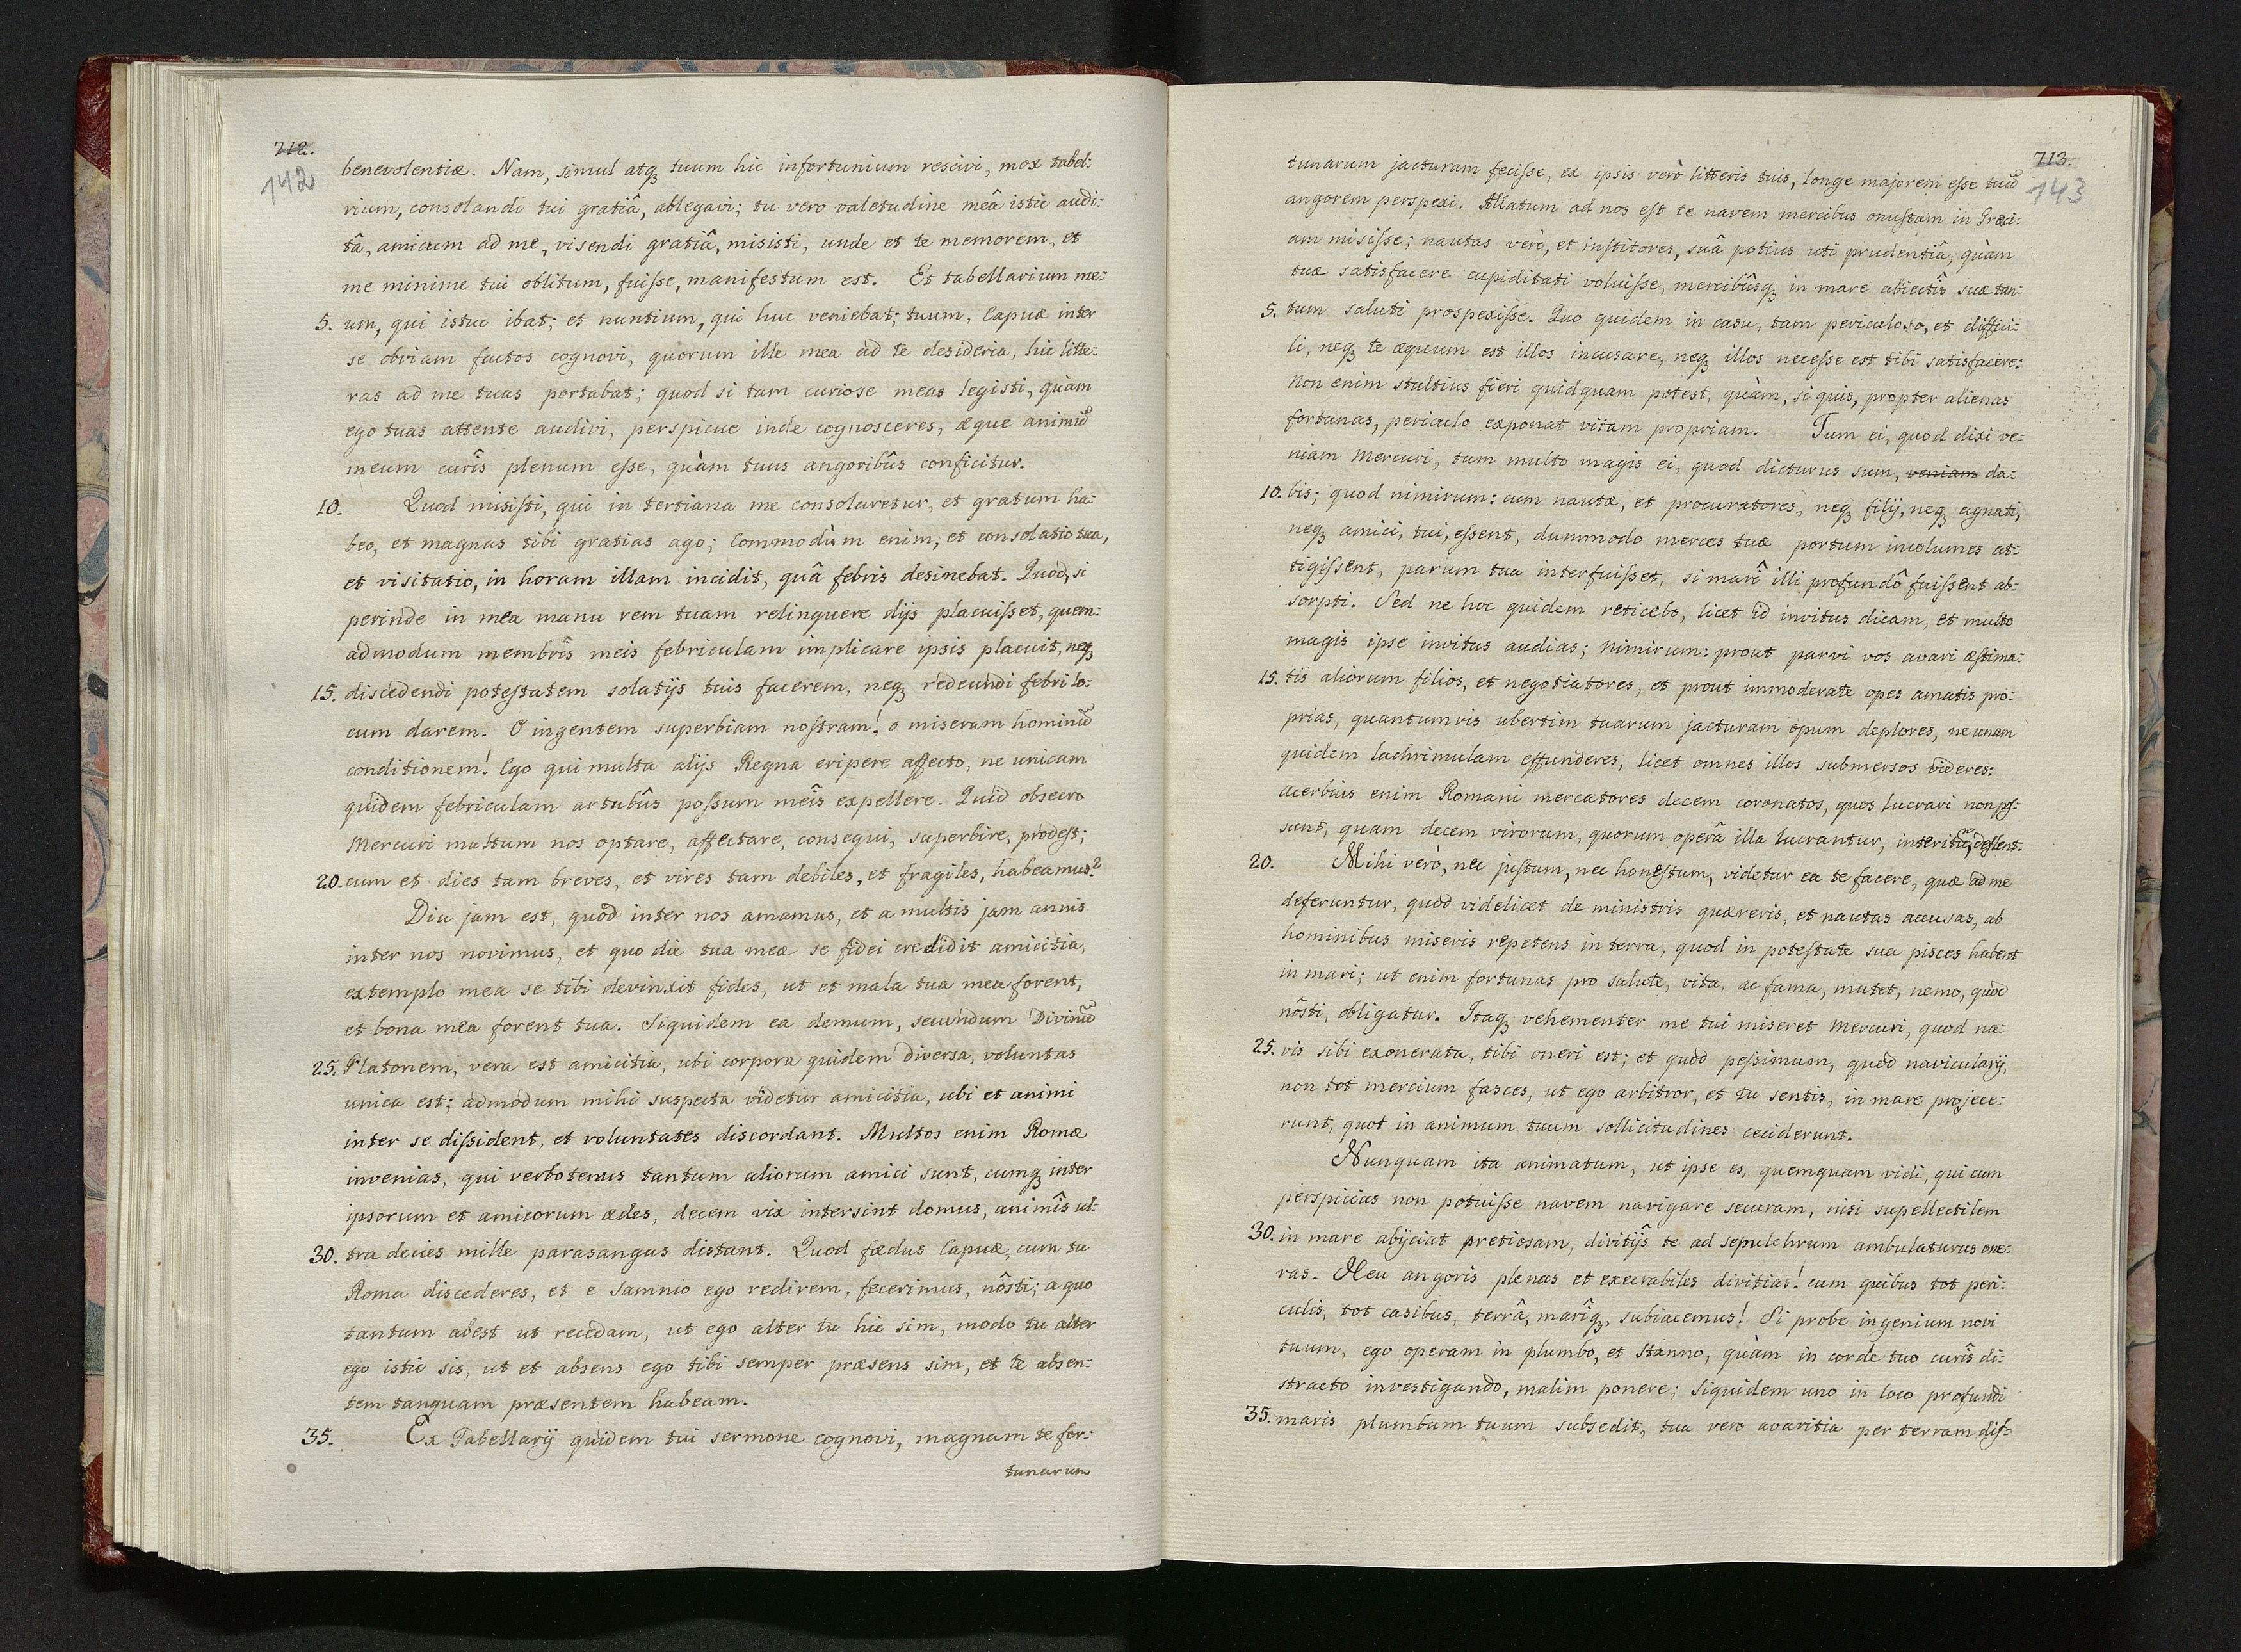 712.
142
benevolentiæ. Nam, simul atqꝫ tuum hic infortunium rescivi, mox tabel:
rium, consolandi tui gratiâ, ablegavi; tu vero valetudine meâ istic audi:
tâ, amicum ad me, visendi gratiâ, misisti, unde et te memorem, et
me minime tui oblitum, fuiſse, manifestum est. Et tabellarium me:
5. um, qui istuc ibat; et nuntium, qui huc veniebat; tuum, Capuæ inter
se obviam factos cognovi, quorum ille mea ad te desideria, hic litte:
ras ad me tuas portabat; quod si tam curiose meas legisti, quàm
ego tuas attente audivi, perspicue inde cognosceres, æque animũ
meum curîs plenum eſse, quàm tuus angoribûs conficitur.
10. Quod misiſti, qui in tertiana me consolaretur, et gratum ha:
beo, et magnas tibi gratias ago; commodùm enim, et consolatio tua,
et visitatio, in horam illam incidit, quâ febris desinebat. Quod, si
perinde in mea manu rem tuam relinquere dijs placuiſset, quem:
admodum membrîs meis febriculam implicare ipsis placuit, neqꝫ
15. discedendi poteſtatem solatijs tuis facerem, neqꝫ redeundi febri lo:
cum darem. O ingentem superbiam noſtram! o miseram hominũ
conditionem! Ego qui multa alijs Regna eripere affecto, ne unicam
quidem febriculam artubûs poſsum meîs expellere. Quid obsecro
Mercuri multum nos optare, affectare, consequi, superbire, prodeſt;
20. cum et dies tam breves, et vires tam debiles, et fragiles, habeamus?
Diu jam est, quòd inter nos amamus, et a multis jam annis
inter nos novimus, et quo die tua meæ se fidei credidit amicitia,
extemplo mea se tibi devinxit fides, ut et mala tua mea forent,
et bona mea forent tua. Siquidem ea demum, secundum Divinũ
25. Platonem, vera est amicitia, ubi corpora quidem diversa, voluntas
unica est; admodum mihi suspecta videtur amicitia, ubi et animi
inter se diſsident, et voluntates discordant. Multos enim Romæ
invenias, qui verbotenus tantum aliorum amici sunt, cumqꝫ inter
ipsorum et amicorum ædes, decem vix intersint domus, animîs ul:
30. tra decies mille parasangas distant. Quod fœdus Capuæ, cum tu
Roma discederes, et e Samnio ego redirem, fecerimus, nôsti; a quo
tantum abest ut recedam, ut ego alter tu hic sim, modo tu alter
ego istic sis, ut et absens ego tibi semper præsens sim, et te absen:
tem tanquam præsentem habeam.
35. Ex Tabellarij quidem tui sermone cognovi, magnam te for:
tunarum
713.
143
tunarum jacturam feciſse, ex ipsis verò litteris tuis, longe majorem eſse tuũ
angorem perspexi. Allatum ad nos eſt te navem mercibus onuſtam in Græci:
am misiſse; nautas verò, et inſtitores, suâ potius uti prudentiâ, quàm
tuæ satisfacere cupiditati voluiſse, mercibûsqꝫ in mare abiectîs suæ tan:
5. tum saluti prospexiſse. Quo quidem in casu, tam periculoso, et diffici:
li, neqꝫ te æquum est illos incusare, neqꝫ illos neceſse est tibi satisfacere:
Non enim stultius fieri quidquam potest, quàm, si quis, propter alienas
fortunas, periculo exponat vitam propriam. Tum ei, quod dixi ve:
niam Mercuri, tum multo magis ei, quod dicturus sum, veniam da:
10. bis; quod nimirum: cum nautæ, et procuratores, neqꝫ filij, neqꝫ agnati,
neqꝫ amici, tui, eſsent, dummodo merces tuæ portum incolumes at:
tigiſsent, parum tua interfuiſset, si marî illi profundô fuiſsent ab:
sorpti. Sed ne hoc quidem reticebo, licet id invitus dicam, et multo
magis ipse invitus audias; Nimirum: prout parvi vos avari æſtima:
15. tis aliorum filios, et negotiatores, et prout immoderate opes amatis pro:
prias, quantumvis ubertim tuarum jacturam opum deplores, ne unam
quidem lachrimulam effunderes, licet omnes illos submersos videres:
acerbius enim Romani mercatores decem coronatos, quos lucrari non poſ:
sunt, quam decem virorum, quorum operâ illa lucrantur, interitũ, deflent.
20. Mihi verò, nec juſtum, nec honeſtum, videtur ea te facere, quæ ad me
deferuntur, quòd videlicet de ministris quæreris, et nautas accusas, ab
hominibus miseris repetens in terra, quod in poteſtate sua pisces habent
in mari; ut enim fortunas pro salute, vita, ac fama, mutet, nemo, quòd
nôsti, obligatur. Itaqꝫ vehementer me tui miseret Mercuri, quod na:
25. vis sibi exonerata, tibi oneri est; et quòd peſsimum, quòd navicularij,
non tot mercium fasces, ut ego arbitror, et tu sentis, in mare projece:
runt, quot in animum tuum sollicitudines ceciderunt.
Nunquam ita animatum, ut ipse es, quemquam vidi, qui cum
perspicias non potuiſse navem navigare securam, nisi supellectilem
30. in mare abijciat pretiosam, divitijs te ad sepulchrum ambulaturus one:
ras. Heu angoris plenas et execrabiles divitias! cum quibus tot peri:
culis, tot casibus, terrâ, marîqꝫ, subiacemus! Si probe ingenium novi
tuum, ego operam in plumbo, et stanno, quàm in corde tuo curîs di:
stracto investigando, malim ponere; Siquidem uno in loco profundi
35. maris plumbum tuum subsedit, tua vero avaritia per terram diſ: